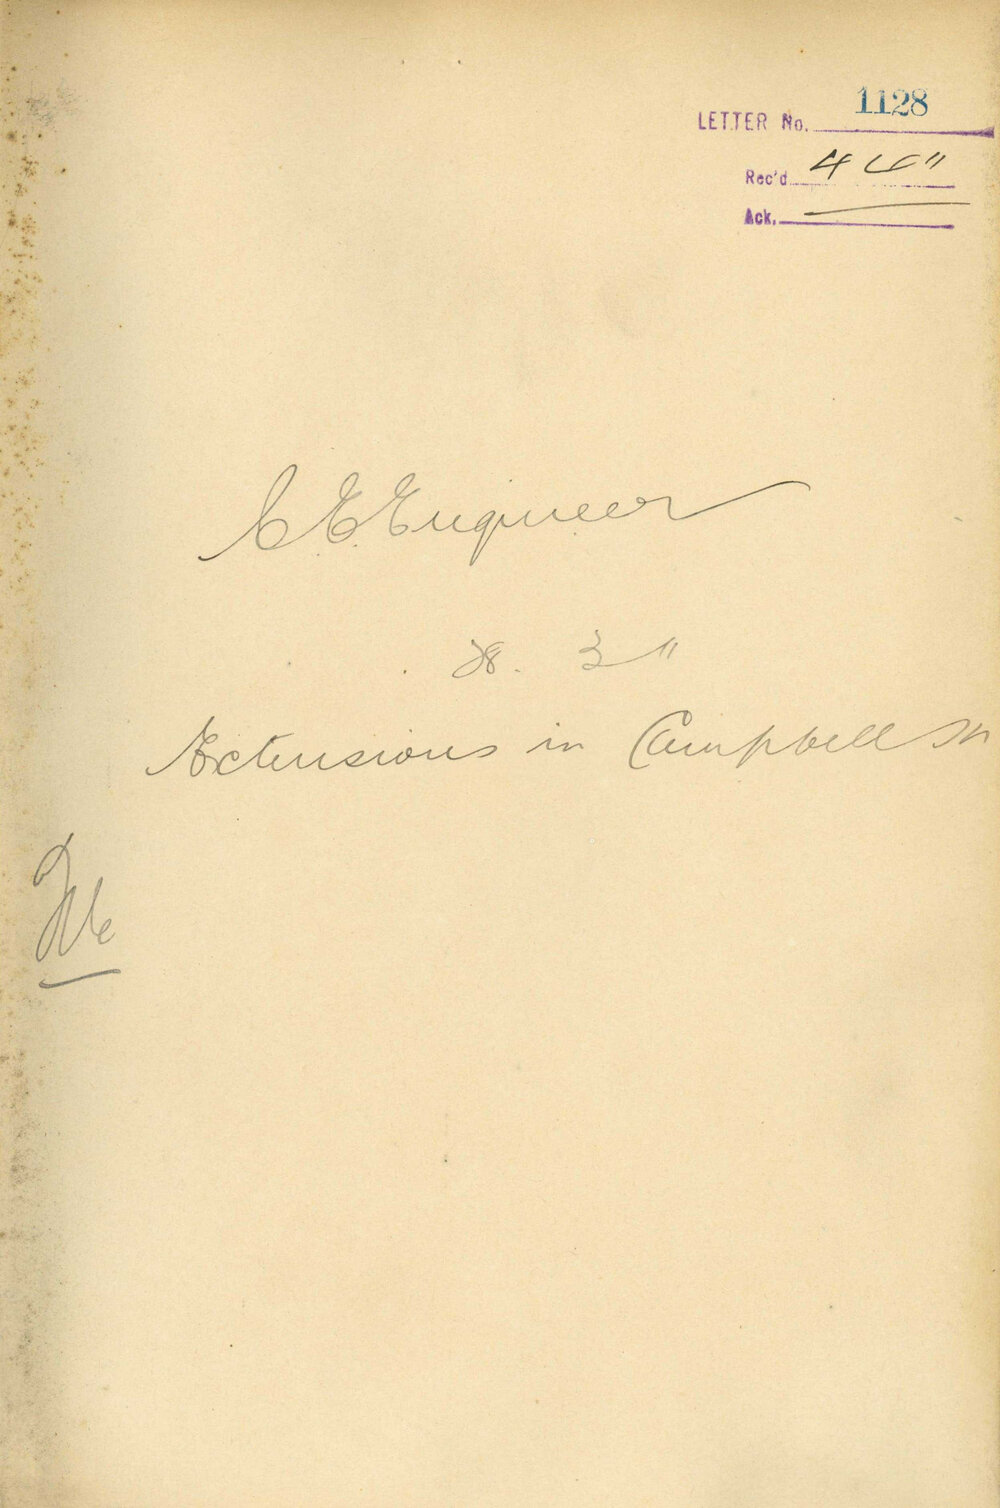 LETTER No. 1128
Rec'd 4
Ack.
C. E. Engineer
Extensions in Campbell St
File